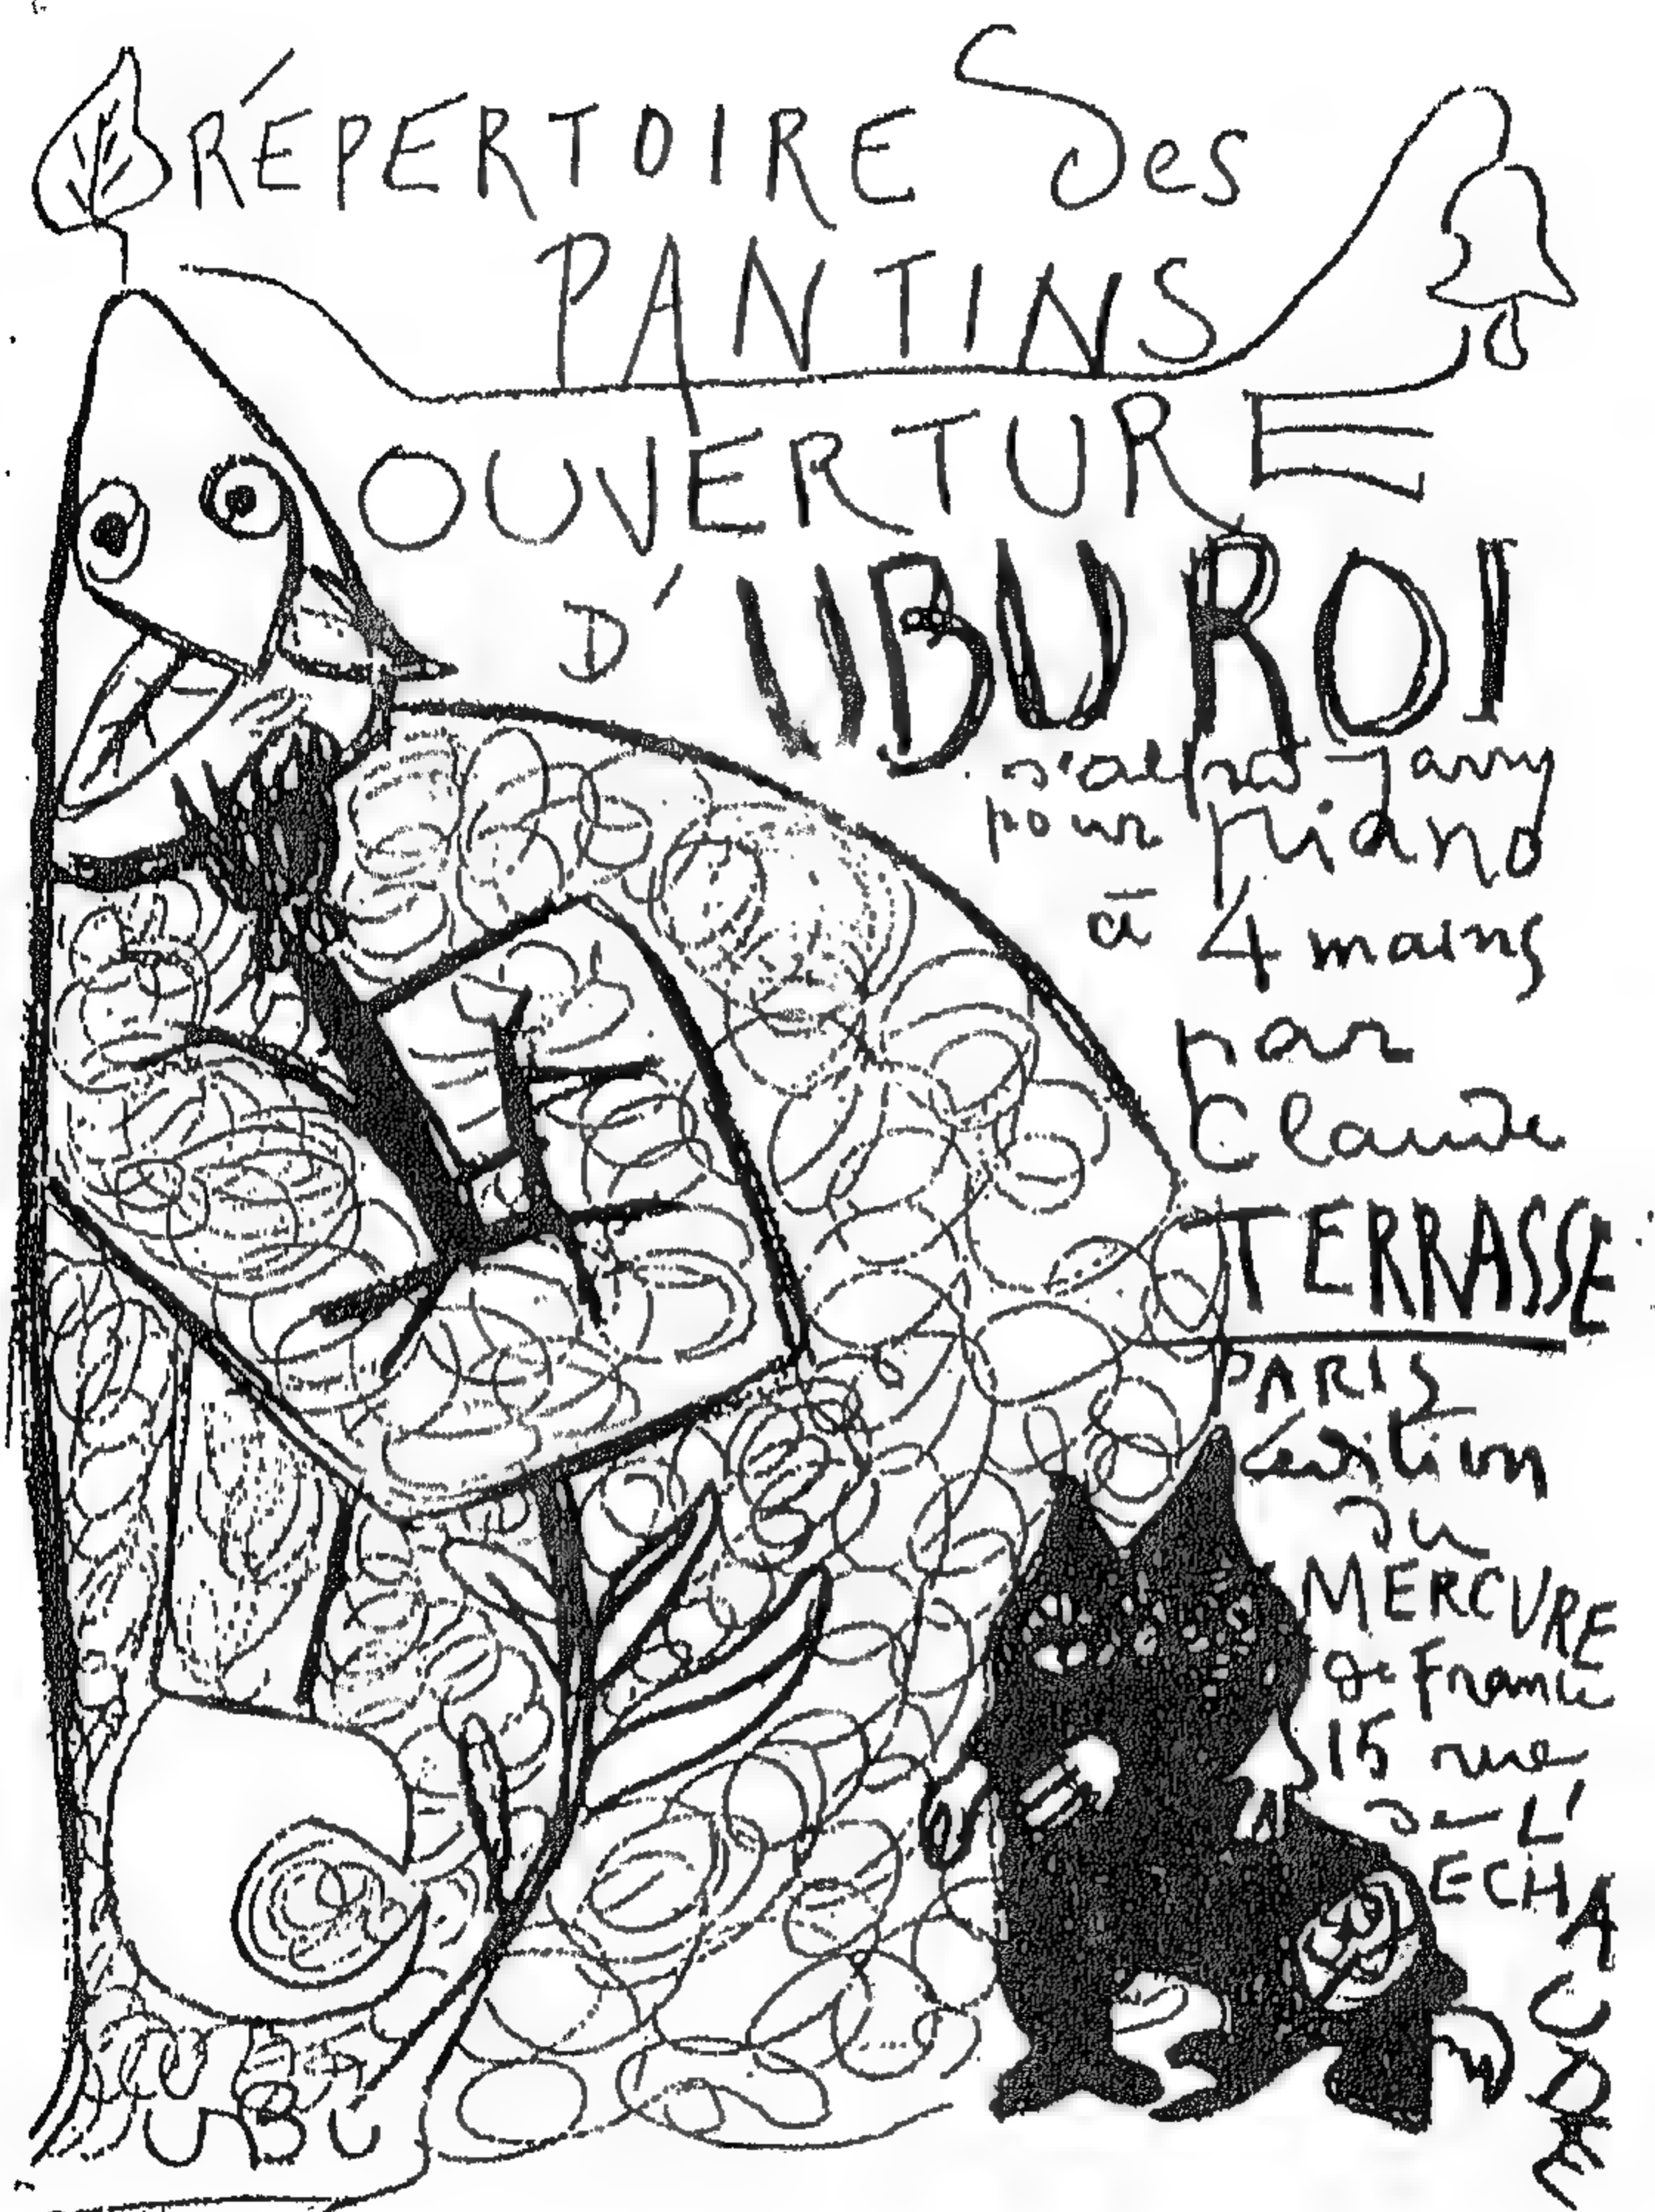 RÉPERTOIRE des
PANTINS
OUVERTURE
D'UBU ROI
d'Alfred Jarry
pour piano
à 4 mains
par
Claude
TERRASSE
PARIS
édition
du
MERCVRE
de France
15 rue
de L'
ECHAUDE
UBU